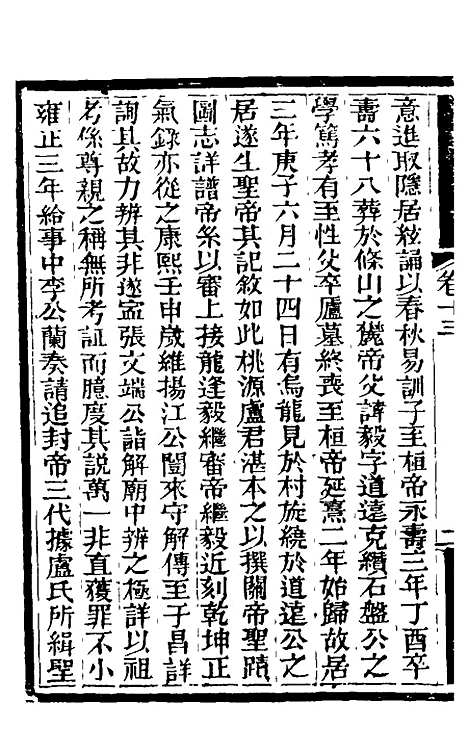 卷十三
意進取隱居絃誦以春秋易訓子至桓帝永壽三年丁酉卒
壽六十八葬於條山之麓帝父諱毅字道遠克纘石盤公之
學篤孝有至性父卒廬墓終喪至桓帝延熹二年始歸故居
三年庚子六月二十四日有烏龍見於村旋繞於道遠公之
居遂生聖帝其記敘如此桃源盧君湛本之以撰關帝聖蹟
圖志詳譜帝系以審上接龍逢毅繼審帝繼毅近刻乾坤正
氣錄亦從之康熙壬申歲維揚江公闓來守解傳至于昌詳
詢其故力辨其非遂寍張文端公詣解廟中辨之極詳以祖
考係尊親之稱無所考証而臆度其說萬一非直獲罪不小
雍正三年給事中李公蘭奏請追封帝三代據盧氏所緝聖